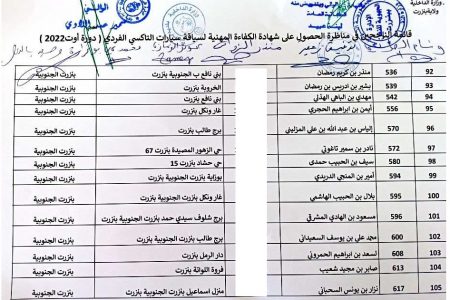 وزارة الداخلية
ولاية بنزرت
قائمة الناجحين في مناظرة الحصول على شهادة الكفاءة المهنية لسياقة سيارات التاكسي الفردي ( دورة أوت2022 )
92 536 منذر بن كريم رمضان بني نافع ب الجنوبية بنزرت بنزرت الجنوبية
93 539 بشير بن ادريس بن رمضان الخروبة بنزرت بنزرت الجنوبية
94 542 مهدي بن الباهي الهذلي بني نافع بنزرت بنزرت الجنوبية
95 556 أيمن بن ابراهيم الحجري غار ونكل بنزرت بنزرت الجنوبية
96 570 إلياس بن عبد الله بن علي المزليني برج طالب بنزرت بنزرت الجنوبية
97 572 نادر بن سمير تاغوتي حي الزهور المصيدة بنزرت 67 بنزرت الجنوبية
98 580 سيف بن الحبيب حمدي حي حشاد بنزرت 15 بنزرت الجنوبية
99 594 أمير بن المنجي الدريدي بوزاية بنزرت الجنوبية بنزرت بنزرت الجنوبية
100 595 بلال بن الحبيب الهاشمي غار ونكل بنزرت الجنوبية بنزرت بنزرت الجنوبية
101 596 مسعود بن الهادي المشرقي برج شلوف سيدي حمد بنزرت الجنوبية بنزرت بنزرت الجنوبية
102 600 محمد علي بن يوسف السعيداني برج طالب بنزرت الجنوبية بنزرت بنزرت الجنوبية
103 608 اسعد بن ابراهيم الحمروني دار الرمل بنزرت بنزرت الجنوبية
104 613 صابر بن مجيد شعيب فروة اللواتة بنزرت بنزرت الجنوبية
105 617 نزار بن يونس السحباني منزل اسماعيل بنزرت الجنوبية بنزرت بنزرت الجنوبية